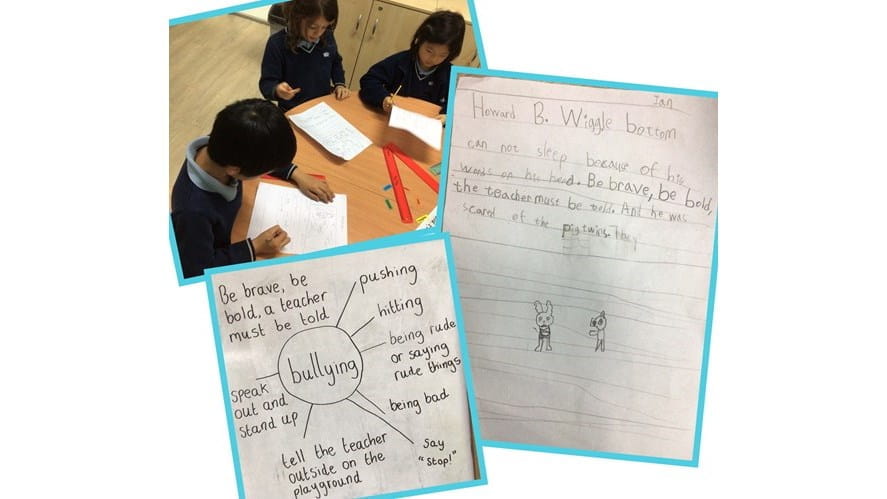 Jan
Howard B. Wiggle bottom
can not sleep because of his
words on his head. Be brave, be bold,
the teacher must be told. And he was
scared of the pig twins. They
Be brave, be
bold, a teacher
must be told
pushing
hitting
being rude
or saying
rude things
bullying
being bad
say
"stop!"
speak
out and
stand up
tell the teacher
outside on the
playground